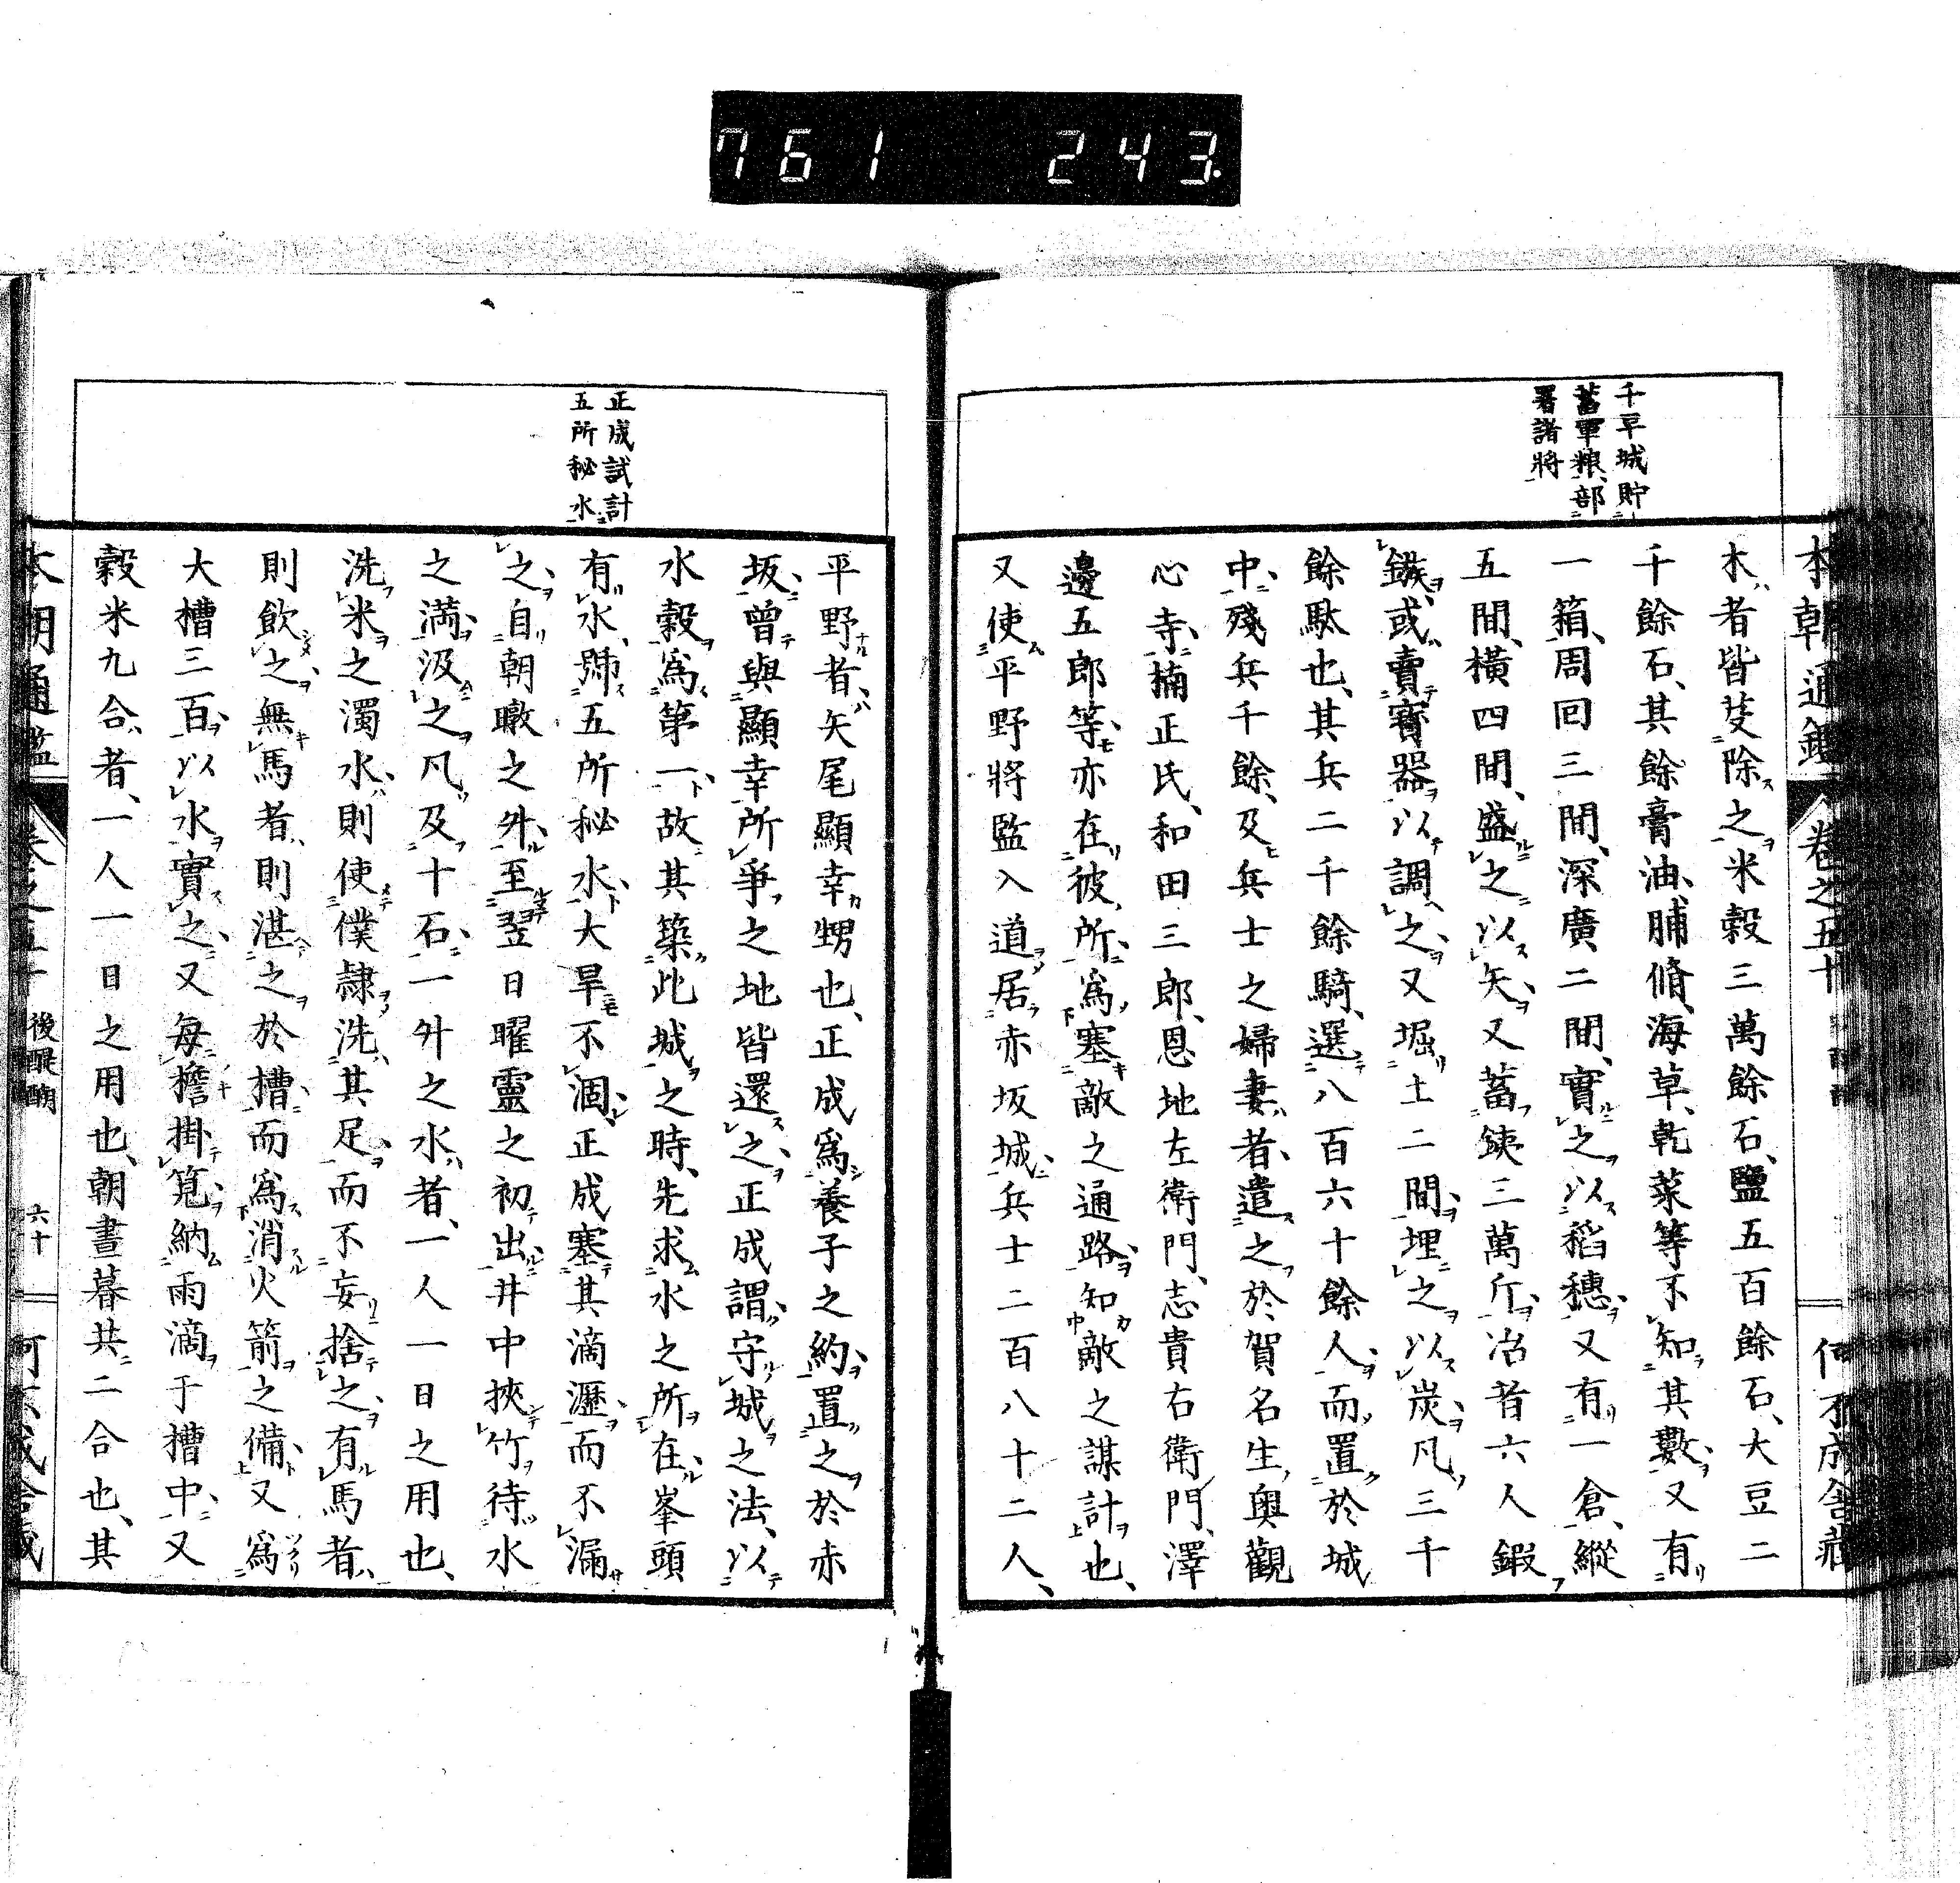 761 243.
本朝通鑑 卷之五十
何不成舍藏
千早城貯
蓄軍粮部
署諸將
木者皆芟除之米穀三萬餘石鹽五百餘石大豆二
千餘石其餘膏油脯脩海草乾菜等不知其數又有
一箱周回三間深廣二間實之以稻穗又有一倉縱
五間橫四間盛之以矢又蓄鐵三萬斤冶者六人鍛
鏃或賣寶器以調之又堀土二間埋之以炭凡三千
餘駄也其兵二千餘騎選八百六十餘人而置於城
中殘兵千餘及兵士之婦妻者遣之於賀名生奧觀
心寺楠正氏和田三郎恩地左衛門志貴右衛門澤
邊五郎等亦在彼所爲塞敵之通路知敵之謀計也
又使平野將監入道居赤坂城兵士二百八十二人
正成試計
五所秘水
平野者矢尾顯幸甥也正成爲養子之約置之於赤
坂曾與顯幸所爭之地皆還之正成謂守城之法以
水穀爲第一故其築此城之時先求水之所在峯頭
有水號五所秘水大旱不涸正成塞其滴瀝而不漏
之自朝暾之外至翌日曜靈之初出井中挾竹待水
之滿汲之凡及十石一升之水者一人一日之用也
洗米之濁水則使僕隷洗其足而不妄捨之有馬者
則飲之無馬者則湛之於槽而爲消火箭之備又爲
大槽三百以水實之又每檐掛筧納雨滴于槽中又
穀米九合者一人一日之用也朝晝暮共二合也其
本朝通鑑 卷之五十 後醍醐 六十